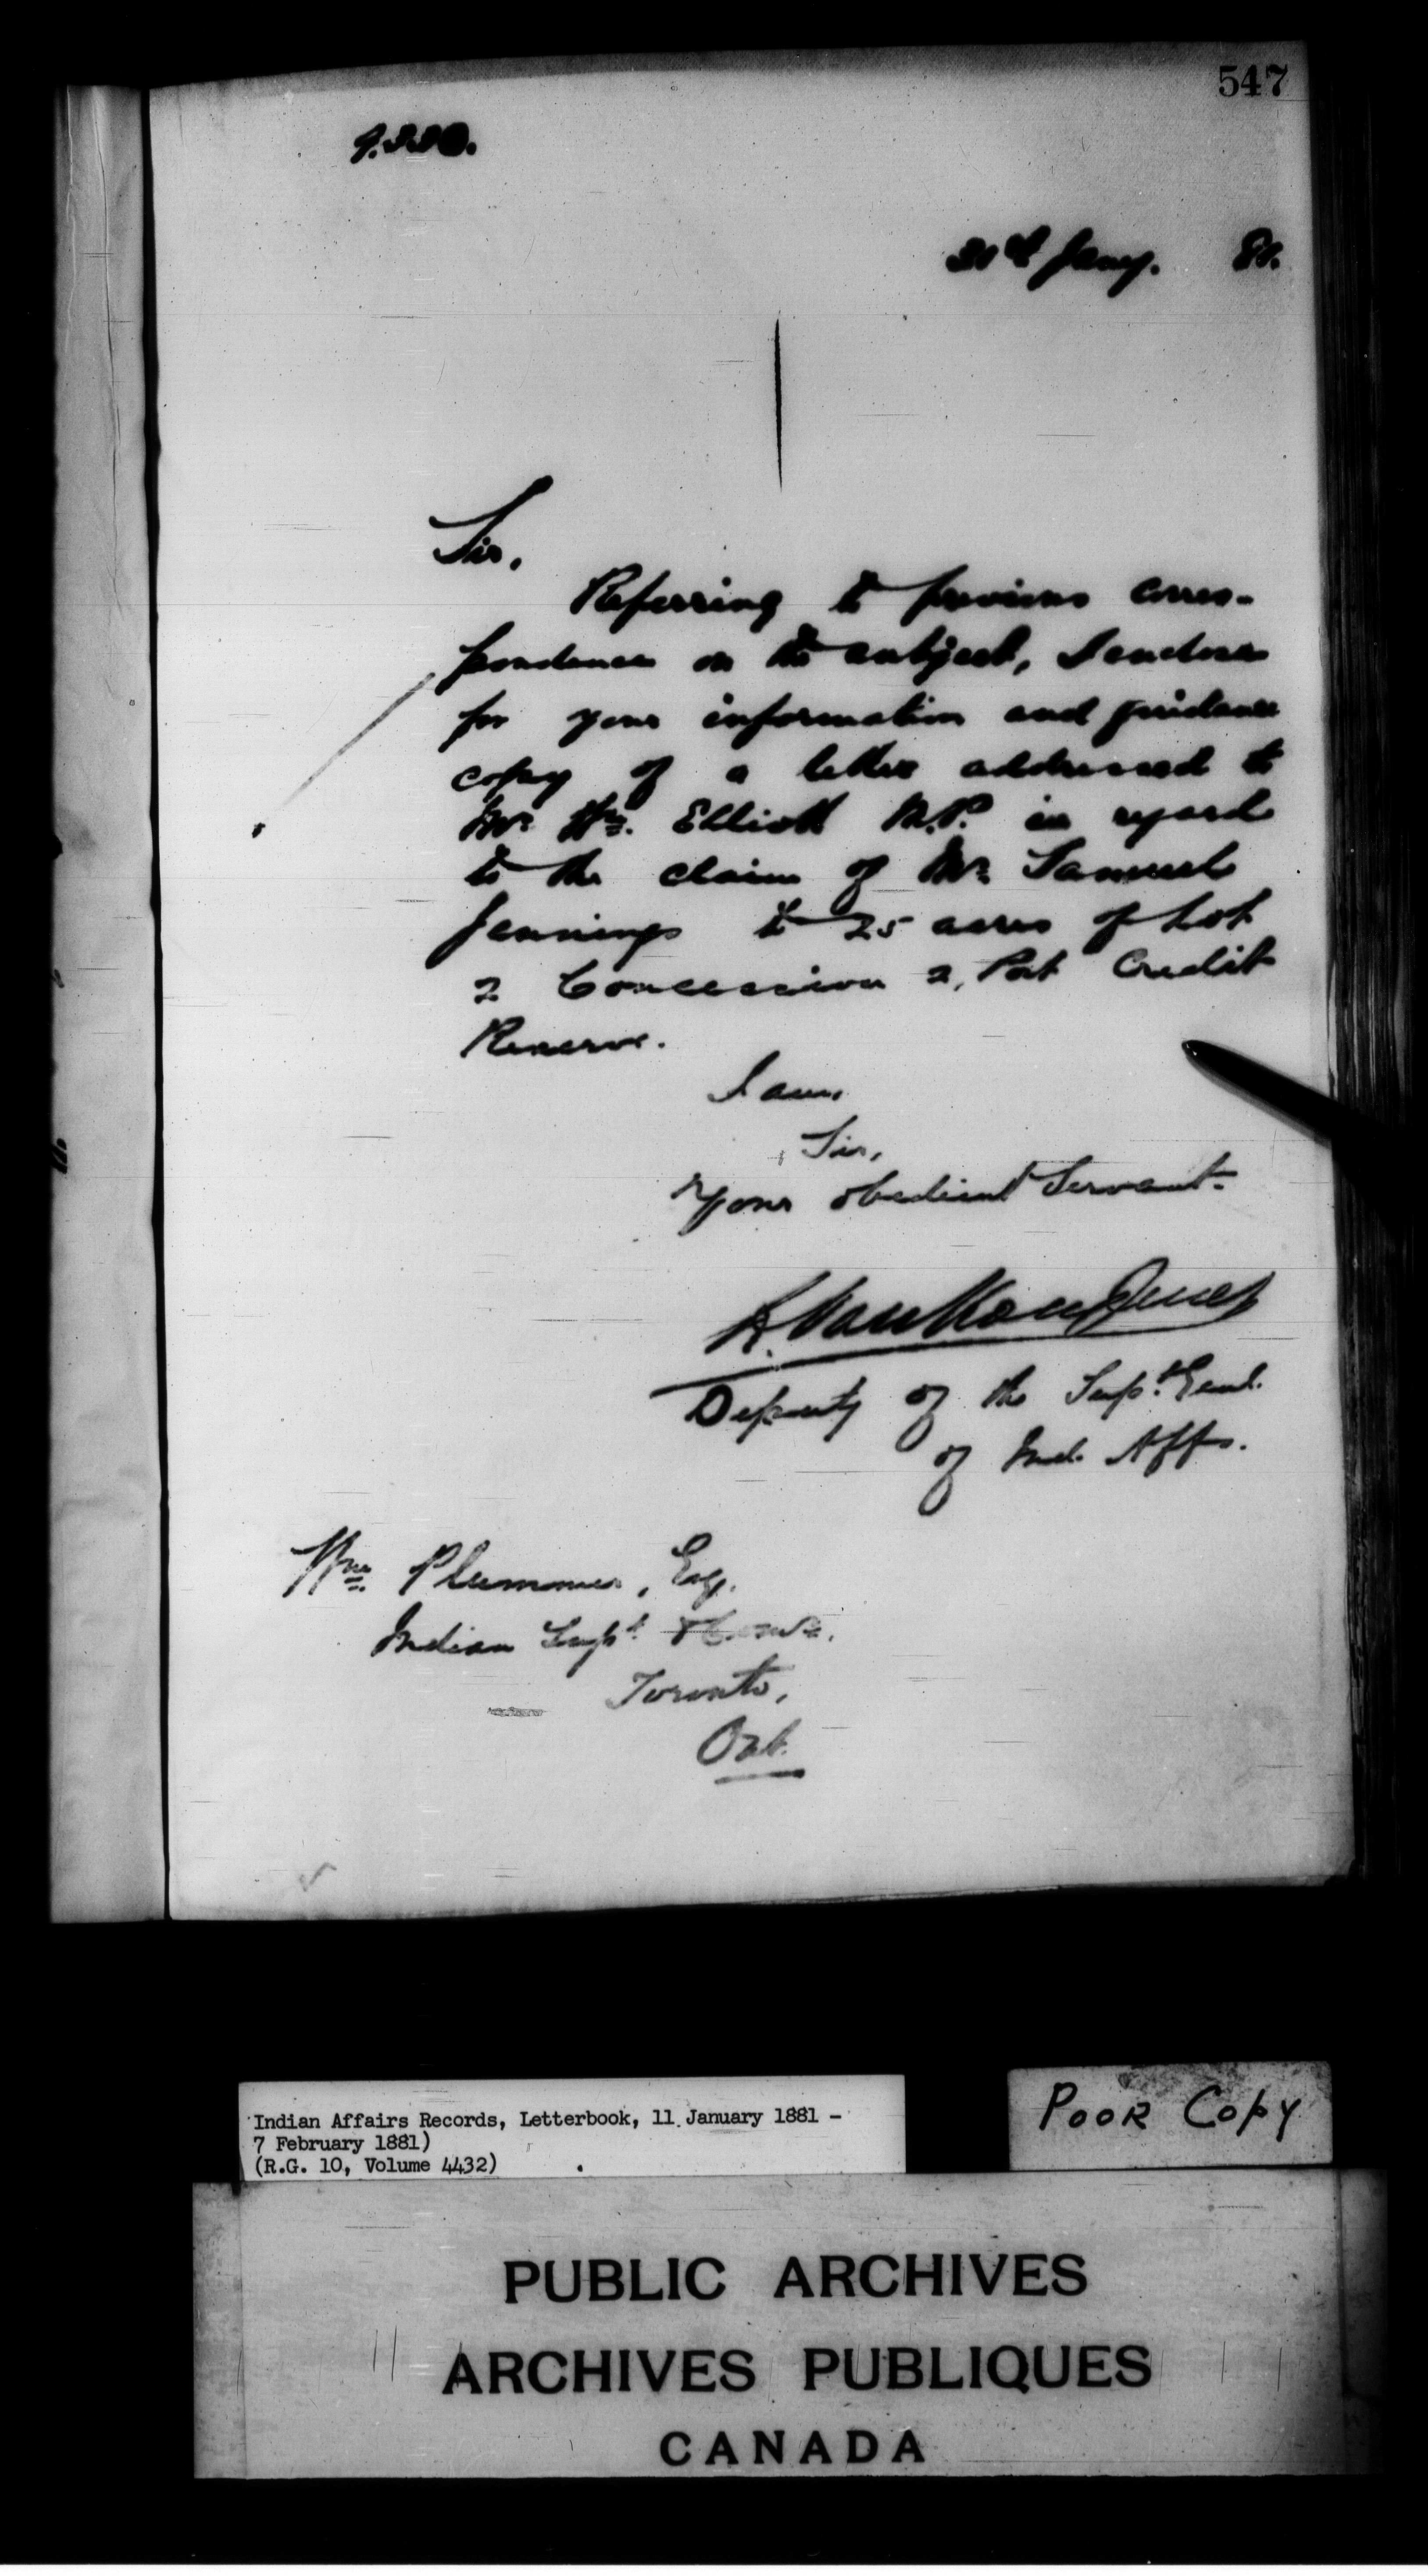 547
31st Jany. 81.
Sir,
Referring to previous corres-
pondence on the subject, I enclose
for your information and guidance
copy of a letter addressed to
Mr. Wm. Elliott M.P. in regard
to the claim of Mr. Samuel
Jennings to 25 acres of Lot
2 Concession 2, Port Credit
Reserve.
I am,
Sir,
Your obedient Servant.
L. VanKoughnet
Deputy of the Supt. Genl.
of Ind. Affs.
Wm. Plummer, Esq.
Indian Supt.
Toronto,
Ont.
Indian Affairs Records, Letterbook, 11 January 1881 -
7 February 1881)
(R.G. 10, Volume 4432)
POOR COPY
PUBLIC ARCHIVES
ARCHIVES PUBLIQUES
CANADA